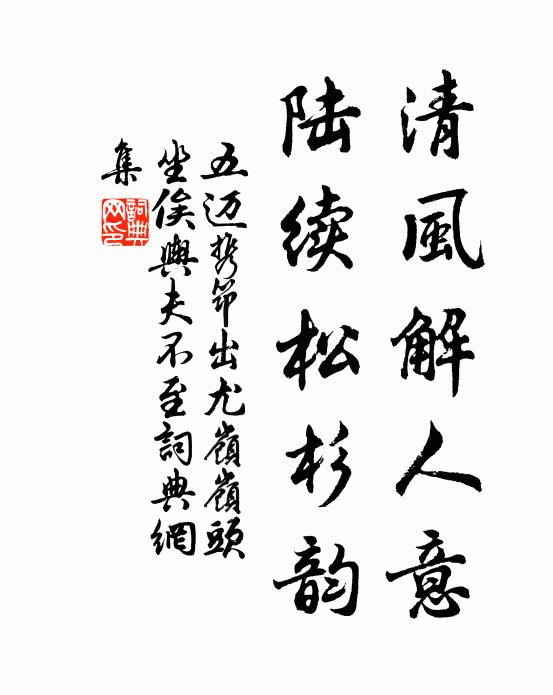 清風解人意
陆续松杉韵
五迈携筇出尤嶺嶺頭
坐俟輿夫不至詞典網
集
詞典
网印